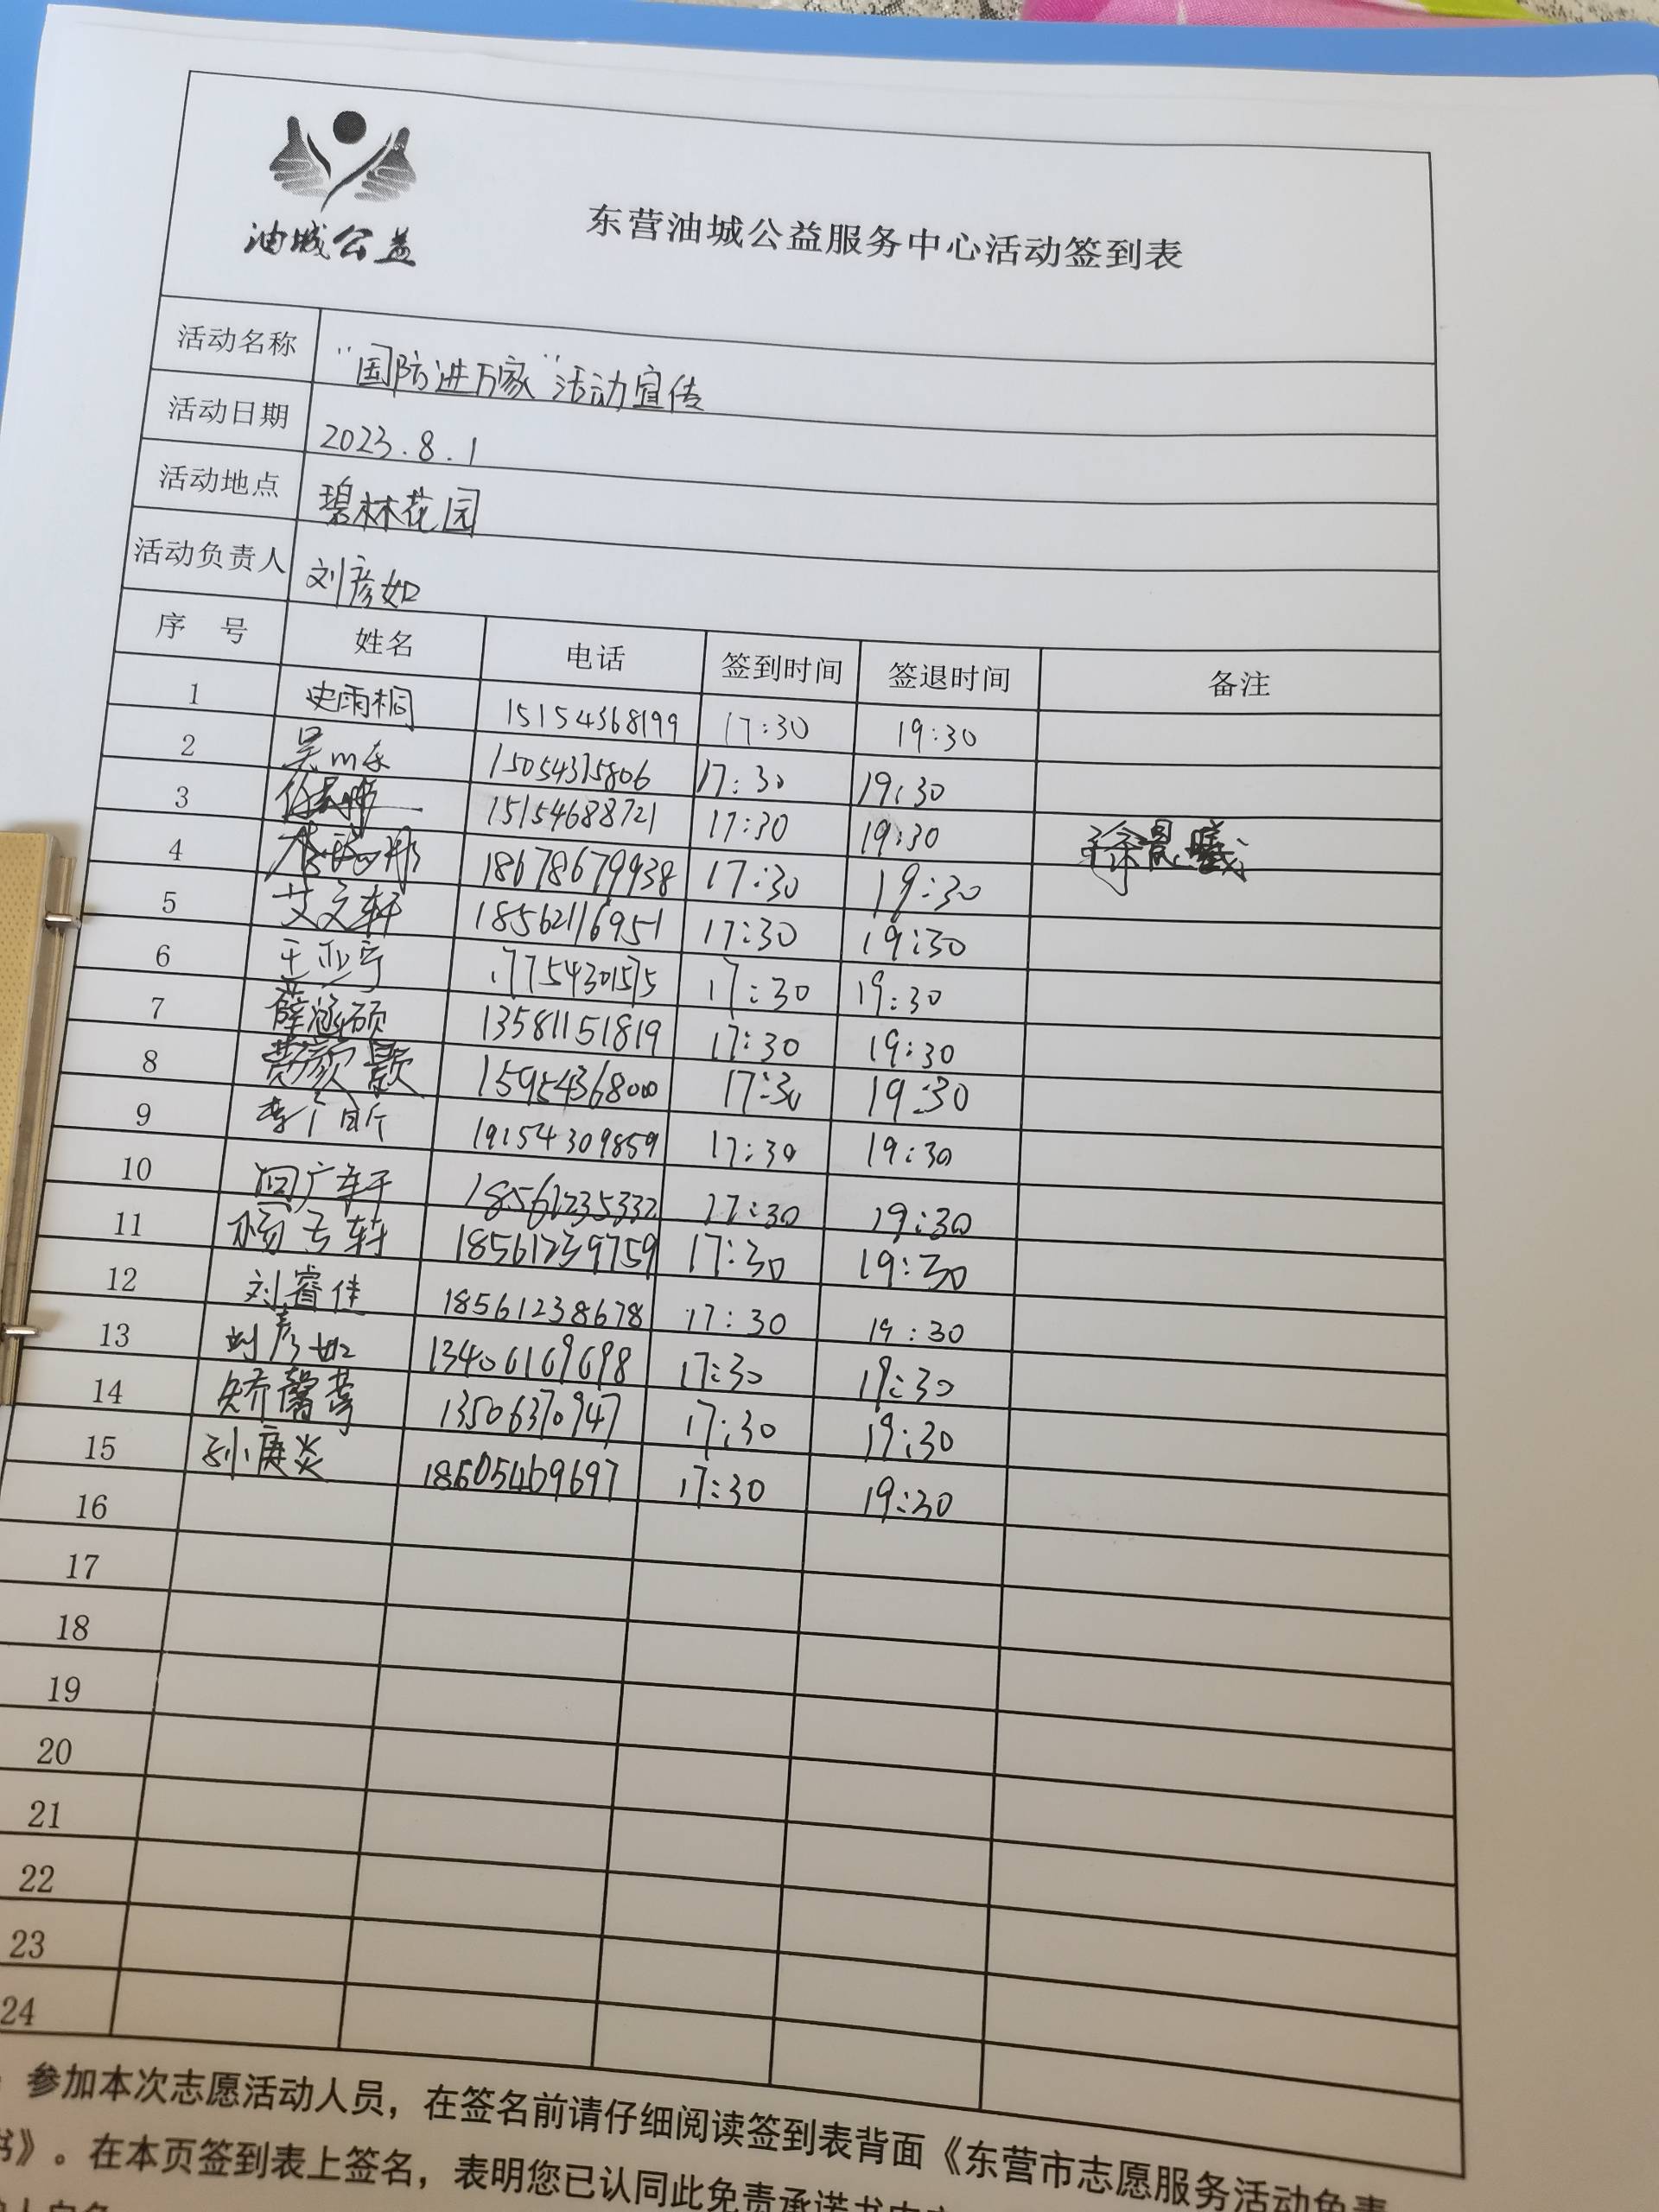 油城公益
东营油城公益服务中心活动签到表
活动名称 "国防进万家"活动宣传
活动日期 2023.8.1
活动地点 碧林花园
活动负责人 刘彦如
序 号 姓名 电话 签到时间 签退时间 备注
1 史雨桐 15154368199 17:30 19:30
2 15054315806 17:30 19:30
3 15154688721 17:30 19:30 徐晨曦
4 18678679938 17:30 19:30
5 艾文轩 18562116951 17:30 19:30
6 王亚宁 17754301575 17:30 19:30
7 薛涵硕 13581151819 17:30 19:30
8 15954368000 17:30 19:30
9 19154309859 17:30 19:30
10 18561235332 17:30 19:30
11 18561239759 17:30 19:30
12 刘睿佳 18561238678 17:30 19:30
13 刘彦如 13406169698 17:30 19:30
14 矫馨莹 13506370947 17:30 19:30
15 孙庭炎 18605469697 17:30 19:30
16
17
18
19
20
21
22
23
24
参加本次志愿活动人员，在签名前请仔细阅读签到表背面《东营市志愿服务活动免责
书》。在本页签到表上签名，表明您已认同此免责承诺书